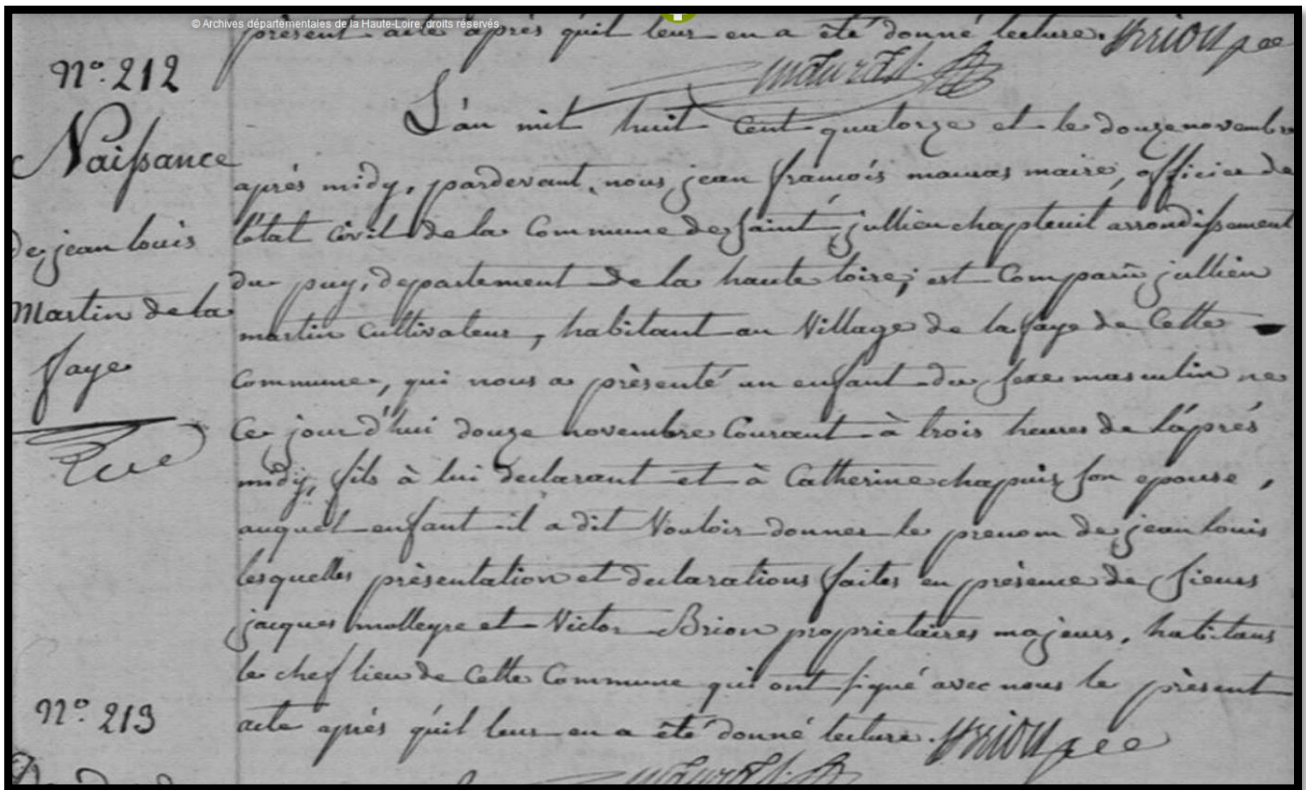 © Archives départementales de la Haute-Loire, droits réservés
présent acte après qu'il leur en a été donné lecture. Brion
N° 212
Naissance
de jean louis
Martin de la
faye
L'an mil huit cent quatorze et le douze novembre
après midy, pardevant nous jean françois mauras maire, officier de
l'état civil de la Commune de Saint jullien chapteuil arrondissement
du puy, département de la haute loire; est Comparu jullien
martin cultivateur, habitant au Village de la faye de Cette
Commune, qui nous a présenté un enfant du sexe masculin ne
Ce jour d'hui douze novembre Courant à trois heures de l'après
midy, fils à lui declarant et à Catherine chapuis son epouse,
auquel enfant il a dit Vouloir donner le prenom de jean louis
lesquelles présentation et declarations faites en présence de sieurs
jacques molleyre et Victor Brion proprietaires majeurs, habitans
le chef lieu de Cette Commune qui ont signé avec nous le présent
acte après qu'il leur en a été donné lecture. Brion
N° 213